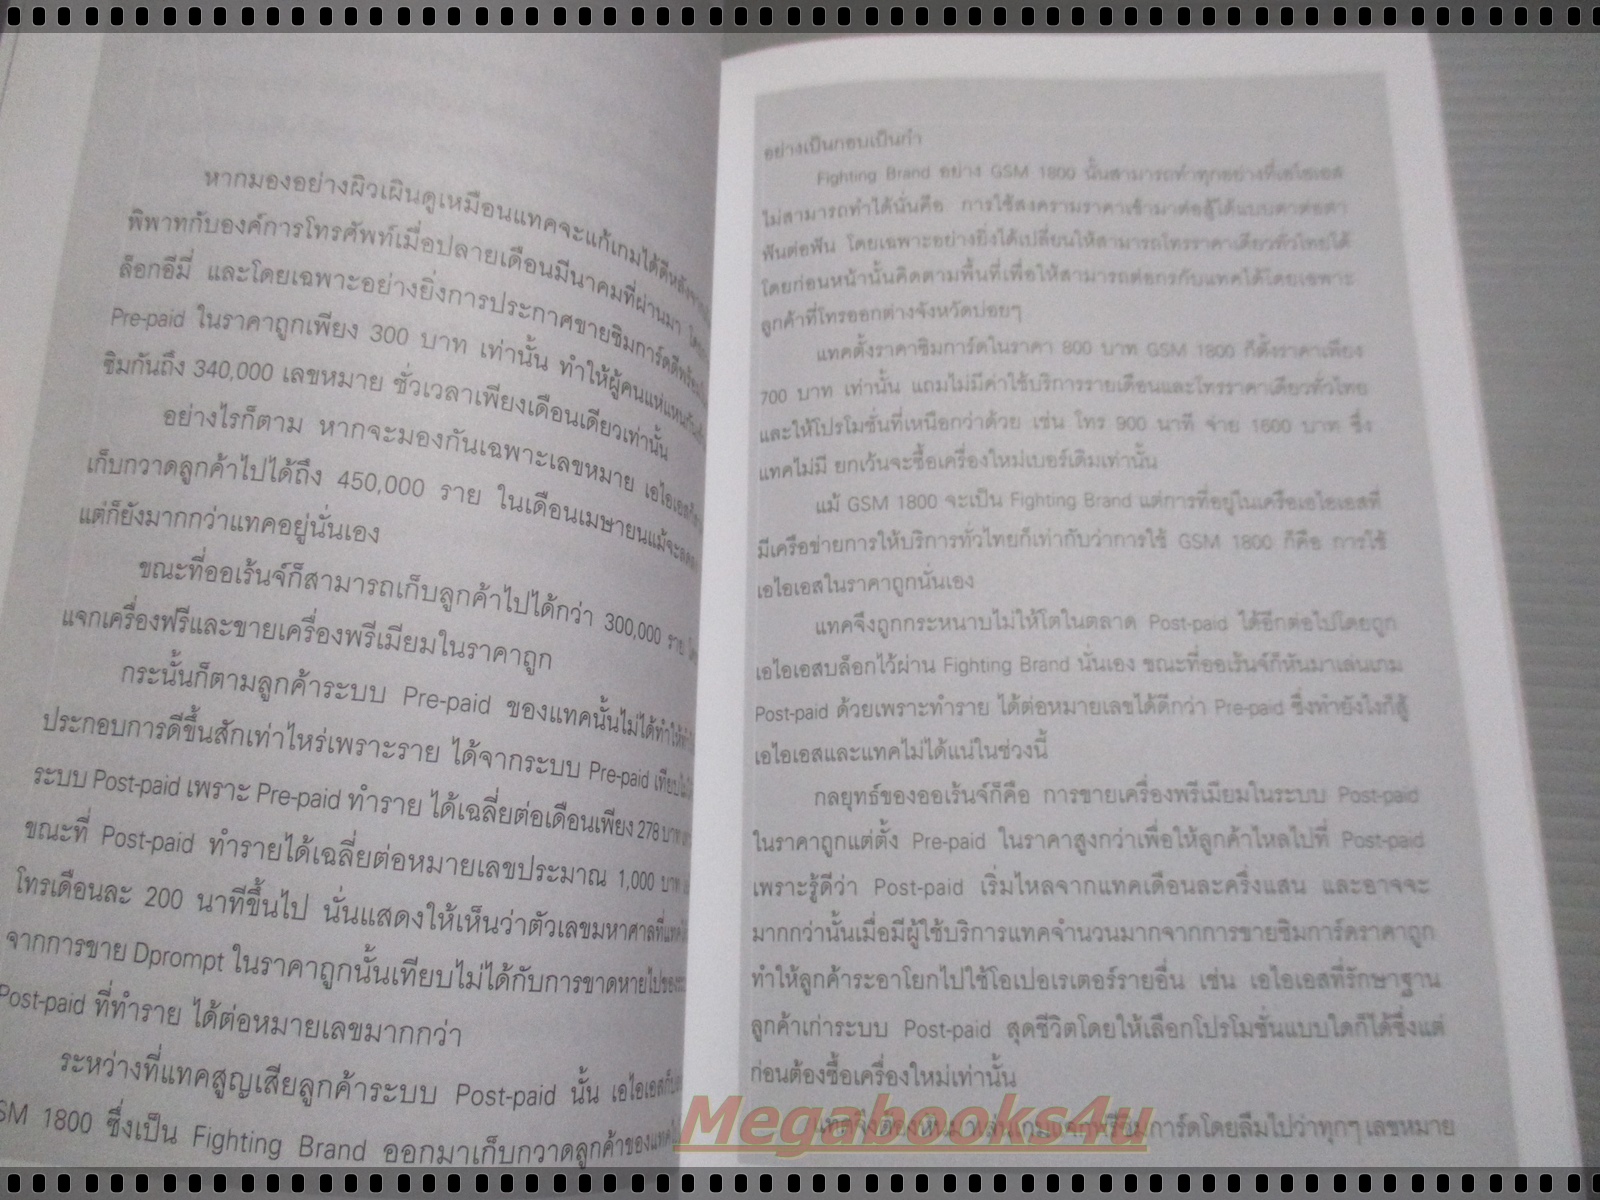 หากมองอย่างผิวเผินดูเหมือนแทคจะแก้เกมได้ดีหลังจาก
พิพาทกับองค์การโทรศัพท์เมื่อปลายเดือนมีนาคมที่ผ่านมา
ล็อกอีมี่ และโดยเฉพาะอย่างยิ่งการประกาศขายซิมการ์ดดีพร้อม
Pre-paid ในราคาถูกเพียง 300 บาท เท่านั้น ทำให้ผู้คนแห่แหน
ซิมกันถึง 340,000 เลขหมาย ชั่วเวลาเพียงเดือนเดียวเท่านั้น
อย่างไรก็ตาม หากจะมองกันเฉพาะเลขหมาย เอไอเอส
เก็บกวาดลูกค้าไปได้ถึง 450,000 ราย ในเดือนเมษายนแม้จะ
แต่ก็ยังมากกว่าแทคอยู่นั่นเอง
ขณะที่ออเร้นจ์ก็สามารถเก็บลูกค้าไปได้กว่า 300,000 ราย
แจกเครื่องฟรีและขายเครื่องพรีเมียมในราคาถูก
กระนั้นก็ตามลูกค้าระบบ Pre-paid ของแทคนั้นไม่ได้ทำให้
ประกอบการดีขึ้นสักเท่าไหร่เพราะราย ได้จากระบบ Pre-paid เทียบ
ระบบ Post-paid เพราะ Pre-paid ทำราย ได้เฉลี่ยต่อเดือนเพียง 278 บาท
ขณะที่ Post-paid ทำรายได้เฉลี่ยต่อหมายเลขประมาณ 1,000 บาท
โทรเดือนละ 200 นาทีขึ้นไป นั่นแสดงให้เห็นว่าตัวเลขมหาศาลที่แทค
จากการขาย Dprompt ในราคาถูกนั้นเทียบไม่ได้กับการขาดหายไปของ
Post-paid ที่ทำราย ได้ต่อหมายเลขมากกว่า
ระหว่างที่แทคสูญเสียลูกค้าระบบ Post-paid นั้น เอไอเอส
SM 1800 ซึ่งเป็น Fighting Brand ออกมาเก็บกวาดลูกค้าของแทค
อย่างเป็นกอบเป็นกำ
Fighting Brand อย่าง GSM 1800 นั้นสามารถทำทุกอย่างที่เอไอเอส
ไม่สามารถทำได้นั่นคือ การใช้สงครามราคาเข้ามาต่อสู้ได้แบบตาต่อตา
ฟันต่อฟัน โดยเฉพาะอย่างยิ่งได้เปลี่ยนให้สามารถโทรราคาเดียวทั่วไทยได้
โดยก่อนหน้านั้นคิดตามพื้นที่เพื่อให้สามารถต่อกรกับแทคได้โดยเฉพาะ
ลูกค้าที่โทรออกต่างจังหวัดบ่อยๆ
แทคตั้งราคาซิมการ์ดในราคา 800 บาท GSM 1800 ก็ตั้งราคาเพียง
700 บาท เท่านั้น แถมไม่มีค่าใช้บริการรายเดือนและโทรราคาเดียวทั่วไทย
และให้โปรโมชั่นที่เหนือกว่าด้วย เช่น โทร 900 นาที จ่าย 1600 บาท ซึ่ง
แทคไม่มี ยกเว้นจะซื้อเครื่องใหม่เบอร์เดิมเท่านั้น
แม้ GSM 1800 จะเป็น Fighting Brand แต่การที่อยู่ในเครือเอไอเอสที่
มีเครือข่ายการให้บริการทั่วไทยก็เท่ากับว่าการใช้ GSM 1800 ก็คือ การใช้
เอไอเอสในราคาถูกนั่นเอง
แทคจึงถูกกระหนาบไม่ให้โตในตลาด Post-paid ได้อีกต่อไปโดยถูก
เอไอเอสบล็อกไว้ผ่าน Fighting Brand นั่นเอง ขณะที่ออเร้นจ์ก็หันมาเล่นเกม
Post-paid ด้วยเพราะทำราย ได้ต่อหมายเลขได้ดีกว่า Pre-paid ซึ่งทำยังไงก็สู้
เอไอเอสและแทคไม่ได้แน่ในช่วงนี้
กลยุทธ์ของออเร้นจ์ก็คือ การขายเครื่องพรีเมียมในระบบ Post-paid
ในราคาถูกแต่ตั้ง Pre-paid ในราคาสูงกว่าเพื่อให้ลูกค้าไหลไปที่ Post-paid
เพราะรู้ดีว่า Post-paid เริ่มไหลจากแทคเดือนละครึ่งแสน และอาจจะ
มากกว่านั้นเมื่อมีผู้ใช้บริการแทคจำนวนมากจากการขายซิมการ์ดราคาถูก
ทำให้ลูกค้าระอาโยกไปใช้โอเปอเรเตอร์รายอื่น เช่น เอไอเอสที่รักษาฐาน
ลูกค้าเก่าระบบ Post-paid สุดชีวิตโดยให้เลือกโปรโมชั่นแบบใดก็ได้ซึ่งแต่
ก่อนต้องซื้อเครื่องใหม่เท่านั้น
แทคจึงต้องหันมาเล่นเกมแจกฟรีซิมการ์ดโดยลืมไปว่าทุกๆ เลขหมาย
Megabooks4u